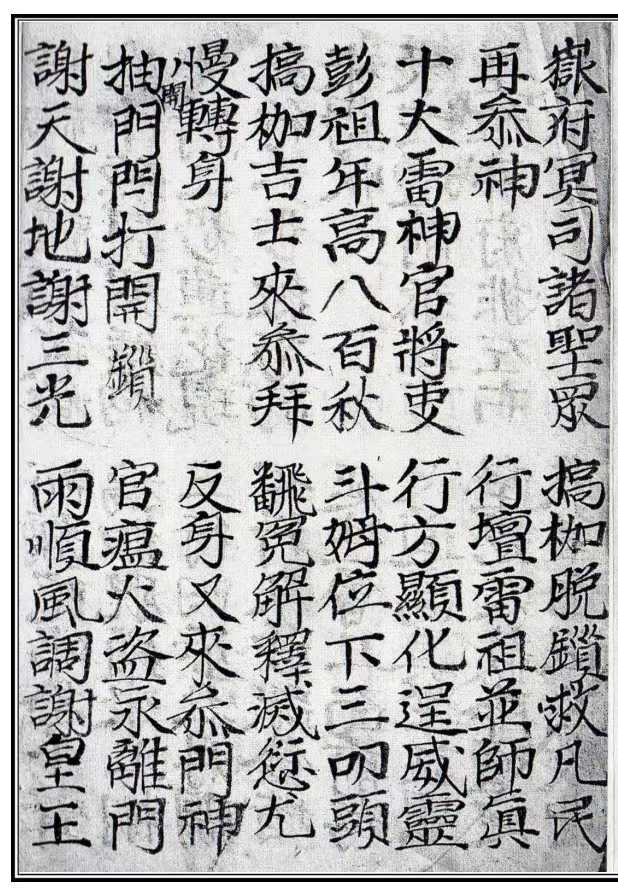 嶽府冥司諸聖眾 搞枷脫鎖救凡民
再叅神 行壇雷祖並師眞
十大雷神官將吏 行方顯化逞威靈
彭祖年高八百秋 斗姆位下三叩頭
搞枷吉士來叅拜 飜冤解釋滅愆尤
慢轉身 反身又來叅門神
開
抽門閂打開鎖 官瘟火盜永離門
謝天謝地謝三光 雨順風調謝皇王